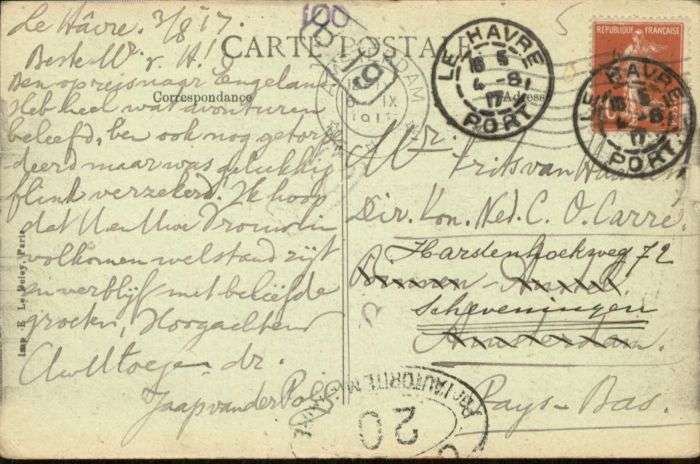 Le Hâvre. 3/8 '17.
Beste W. v. H!
Ben op reis naar Engeland
Heb heel wat avonturen
beleefd, ben ook nog getorp
deerd maar was gelukkig
flink verzekerd. Ik hoop
dat U en Uwe Vrouw in
volkomen welstand zijt
en verblijf met beleefde
groeten, Hoogachtend
dr.
Jaap van der Pol
CARTE POSTALE
Correspondance
Adresse
100
LE HAVRE
16 5
4 - 8
17
PORT
REPUBLIQUE FRANÇAISE
LE HAVRE
16 5
4 - 8
17
PORT
Mr. Frits van
Dir. Kon. Ned. C. O. Carré.
Harstenhoekweg 72
Binnen Amstel
Scheveningen
Amsterdam.
Pays-Bas.
L'AUTORITÉ
20
Imp. E. Le Deley, Paris